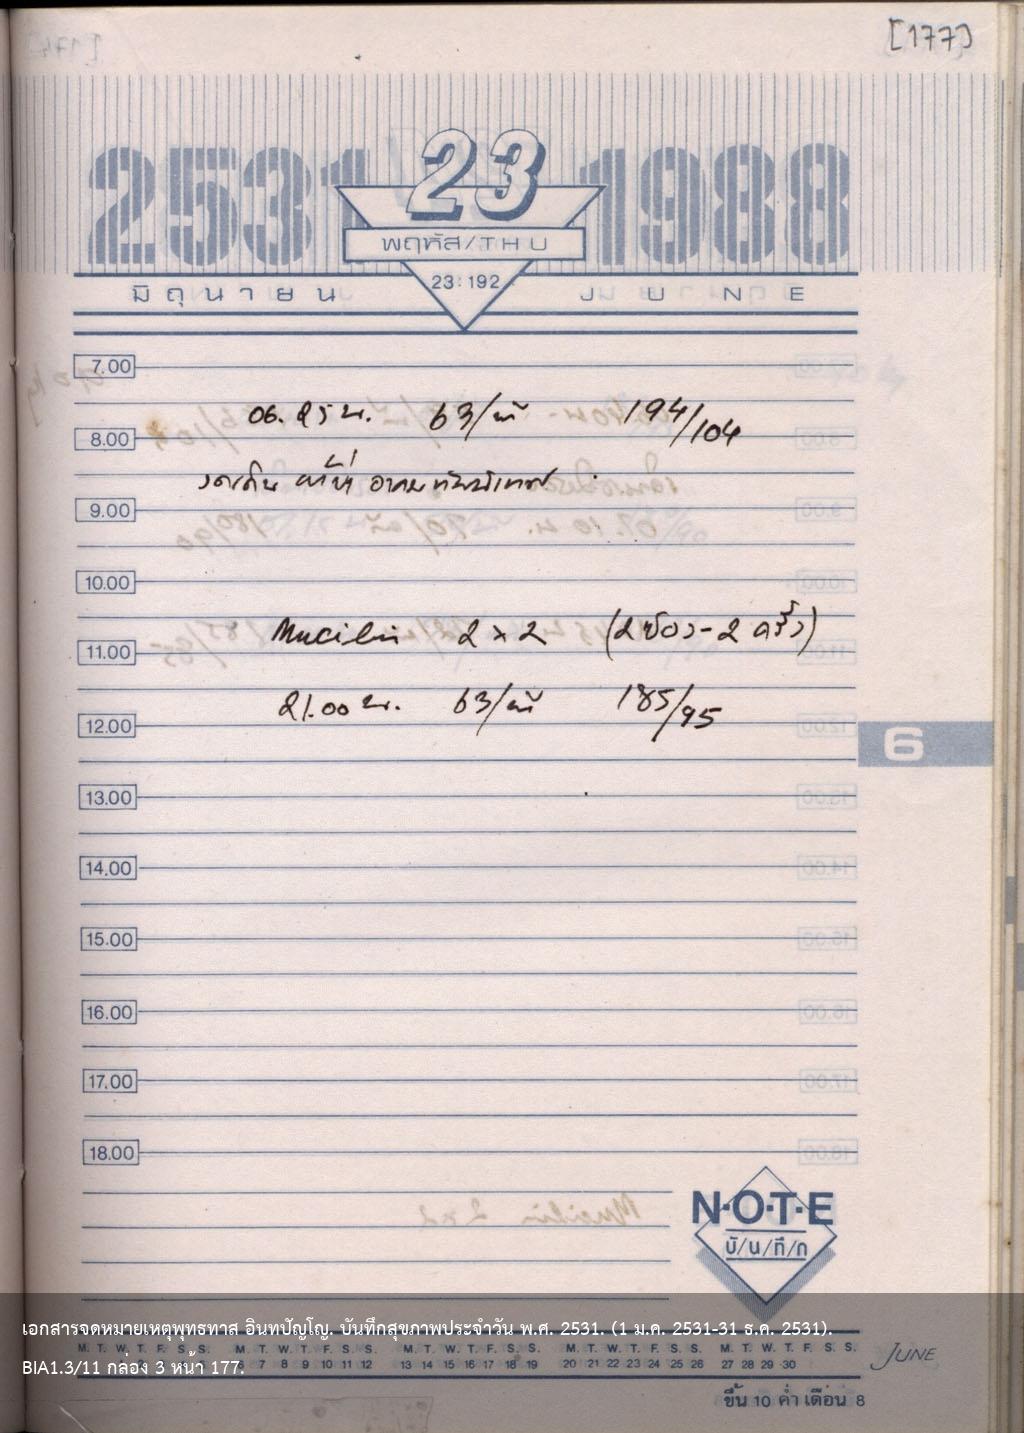 [177]
2531 23 1988
พฤหัส/THU
23:192
มิถุนายน JUNE
7.00
06.25 น. 63/นาที 194/104
8.00
9.00
10.00
Mucilin 2 x 2 (2 ช้อน - 2 ครั้ง)
11.00
21.00 น. 63/นาที 185/95
12.00
6
13.00
14.00
15.00
16.00
17.00
18.00
N·O·T·E
บั/น/ทึ/ก
เอกสารจดหมายเหตุพุทธทาส อินทปัญโญ. บันทึกสุขภาพประจำวัน พ.ศ. 2531. (1 ม.ค. 2531-31 ธ.ค. 2531).
M. T. W. T. F. S. S. M. T. W. T. F. S. S. M. T. W. T. F. S. S. M. T. W. T. F. S. S. M. T. W. T. F. S. S.
6 7 8 9 10 11 12 13 14 15 16 17 18 19 20 21 22 23 24 25 26 27 28 29 30 JUNE
BIA1.3/11 กล่อง 3 หน้า 177.
ขึ้น 10 ค่ำ เดือน 8